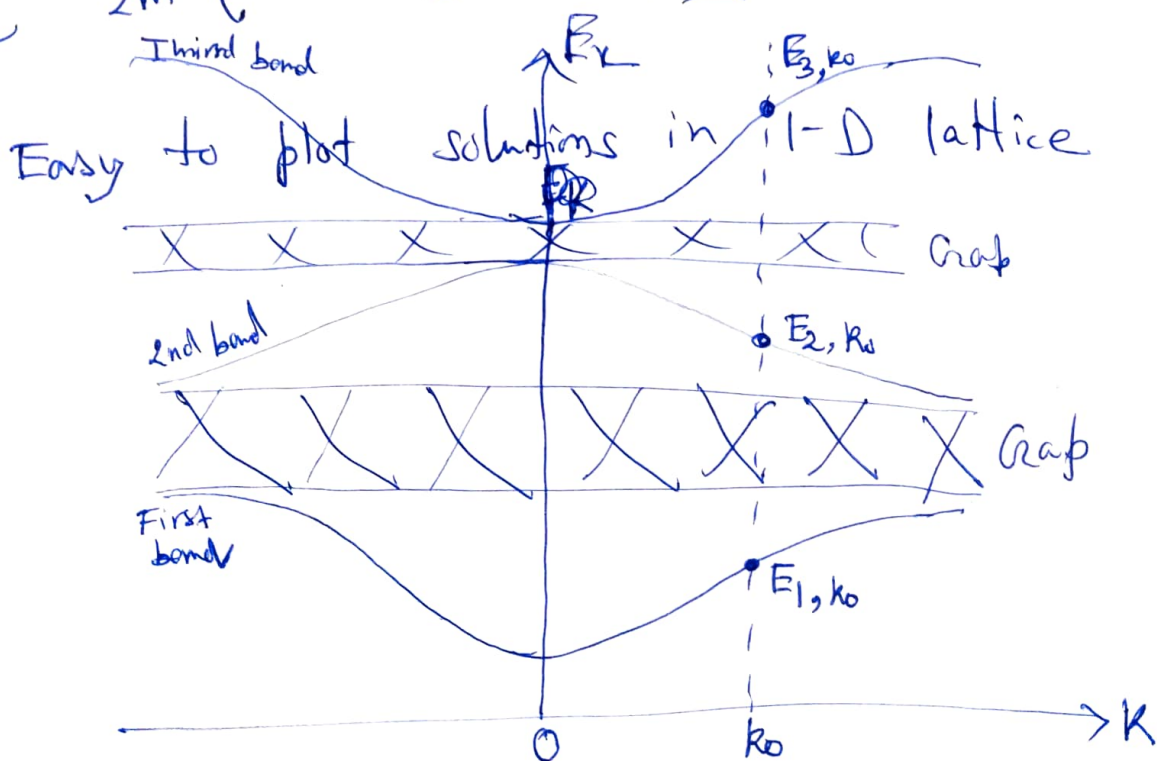 2m
Third band
E_k
E_3,k₀
Easy to plot solutions in 1-D lattice
Gap
2nd band
E_2,k₀
Gap
First
band
E_1,k₀
0
k₀
K